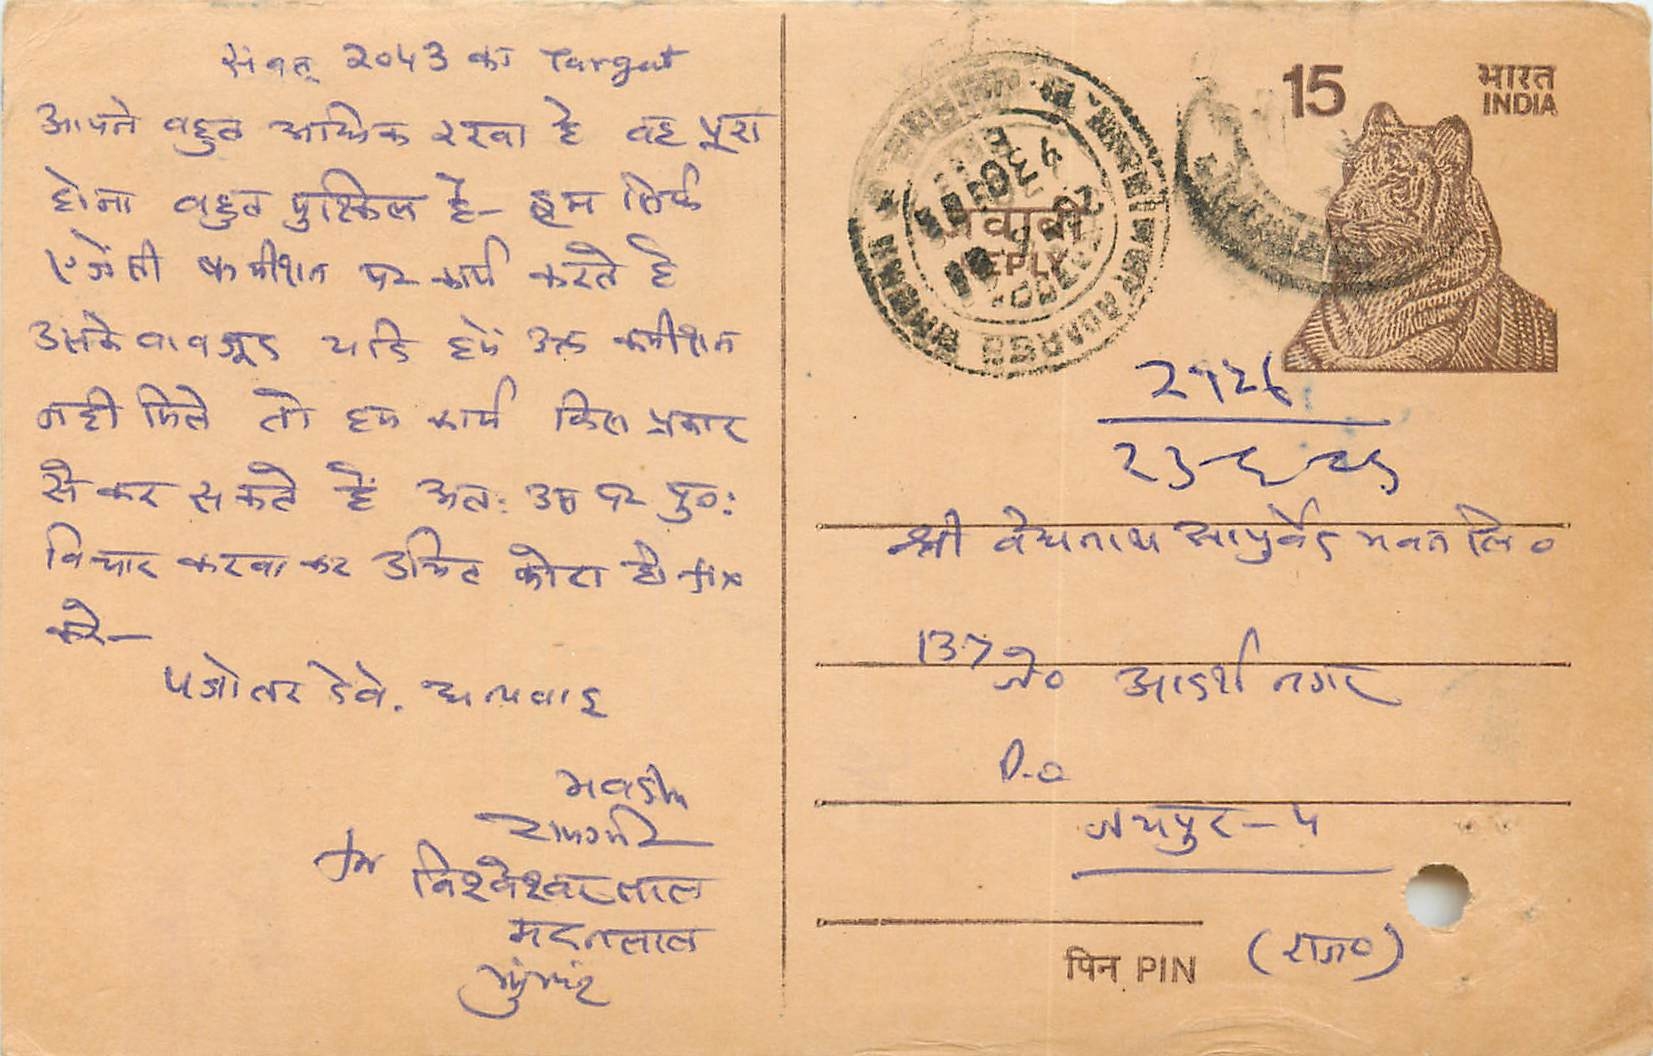 संवत् 2043 का Target
आपने बहुत अधिक रखा है वह पूरा
होना बहुत मुश्किल है- हम सिर्फ
एजेंसी कमीशन पर कार्य करते है
उसके बावजूद यदि हमें उक्त कमीशन
नही मिले तो हम कार्य किस प्रकार
से कर सकते हैं अतः उस पर पुनः
विचार करवा कर उचित कोटा ही fix
करे-
पत्रोत्तर देवे. धन्यवाद
भवदीय
For विश्वेश्वरलाल
मदनलाल
15
भारत
INDIA
जवाबी
REPLY
2926
23-6-86
श्री वैद्यनाथ आयुर्वेद भवन लि०
137 जे० आदर्श नगर
P.O
जयपुर-4
पिन PIN (राज०)